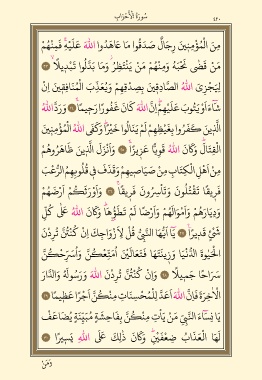 سُورَةُ الْأَحْزَابِ ٤٢٠
مِنَ الْمُؤْمِنِينَ رِجَالٌ صَدَقُوا مَا عَاهَدُوا اللّٰهَ عَلَيْهِ فَمِنْهُمْ
مَنْ قَضٰى نَحْبَهُ وَمِنْهُمْ مَنْ يَنْتَظِرُ وَمَا بَدَّلُوا تَبْدِيلًا ٢٣
لِيَجْزِيَ اللّٰهُ الصَّادِقِينَ بِصِدْقِهِمْ وَيُعَذِّبَ الْمُنَافِقِينَ اِنْ
شَٓاءَ اَوْ يَتُوبَ عَلَيْهِمْ اِنَّ اللّٰهَ كَانَ غَفُورًا رَحِيمًا ٢٤ وَرَدَّ اللّٰهُ
الَّذِينَ كَفَرُوا بِغَيْظِهِمْ لَمْ يَنَالُوا خَيْرًا وَكَفَى اللّٰهُ الْمُؤْمِنِينَ
الْقِتَالَ وَكَانَ اللّٰهُ قَوِيًّا عَزِيزًا ٢٥ وَاَنْزَلَ الَّذِينَ ظَاهَرُوهُمْ
مِنْ اَهْلِ الْكِتَابِ مِنْ صَيَاصِيهِمْ وَقَذَفَ فِي قُلُوبِهِمُ الرُّعْبَ
فَرِيقًا تَقْتُلُونَ وَتَأْسِرُونَ فَرِيقًا ٢٦ وَاَوْرَثَكُمْ اَرْضَهُمْ
وَدِيَارَهُمْ وَاَمْوَالَهُمْ وَاَرْضًا لَمْ تَطَؤُهَا وَكَانَ اللّٰهُ عَلٰى كُلِّ
شَيْءٍ قَدِيرًا ٢٧ يَٓا اَيُّهَا النَّبِيُّ قُلْ لِاَزْوَاجِكَ اِنْ كُنْتُنَّ تُرِدْنَ
الْحَيٰوةَ الدُّنْيَا وَزِينَتَهَا فَتَعَالَيْنَ اُمَتِّعْكُنَّ وَاُسَرِّحْكُنَّ
سَرَاحًا جَمِيلًا ٢٨ وَاِنْ كُنْتُنَّ تُرِدْنَ اللّٰهَ وَرَسُولَهُ وَالدَّارَ
الْاٰخِرَةَ فَاِنَّ اللّٰهَ اَعَدَّ لِلْمُحْسِنَاتِ مِنْكُنَّ اَجْرًا عَظِيمًا ٢٩
يَا نِسَٓاءَ النَّبِيِّ مَنْ يَأْتِ مِنْكُنَّ بِفَاحِشَةٍ مُبَيِّنَةٍ يُضَاعَفْ
لَهَا الْعَذَابُ ضِعْفَيْنِ وَكَانَ ذٰلِكَ عَلَى اللّٰهِ يَسِيرًا ٣٠
وَمَنْ